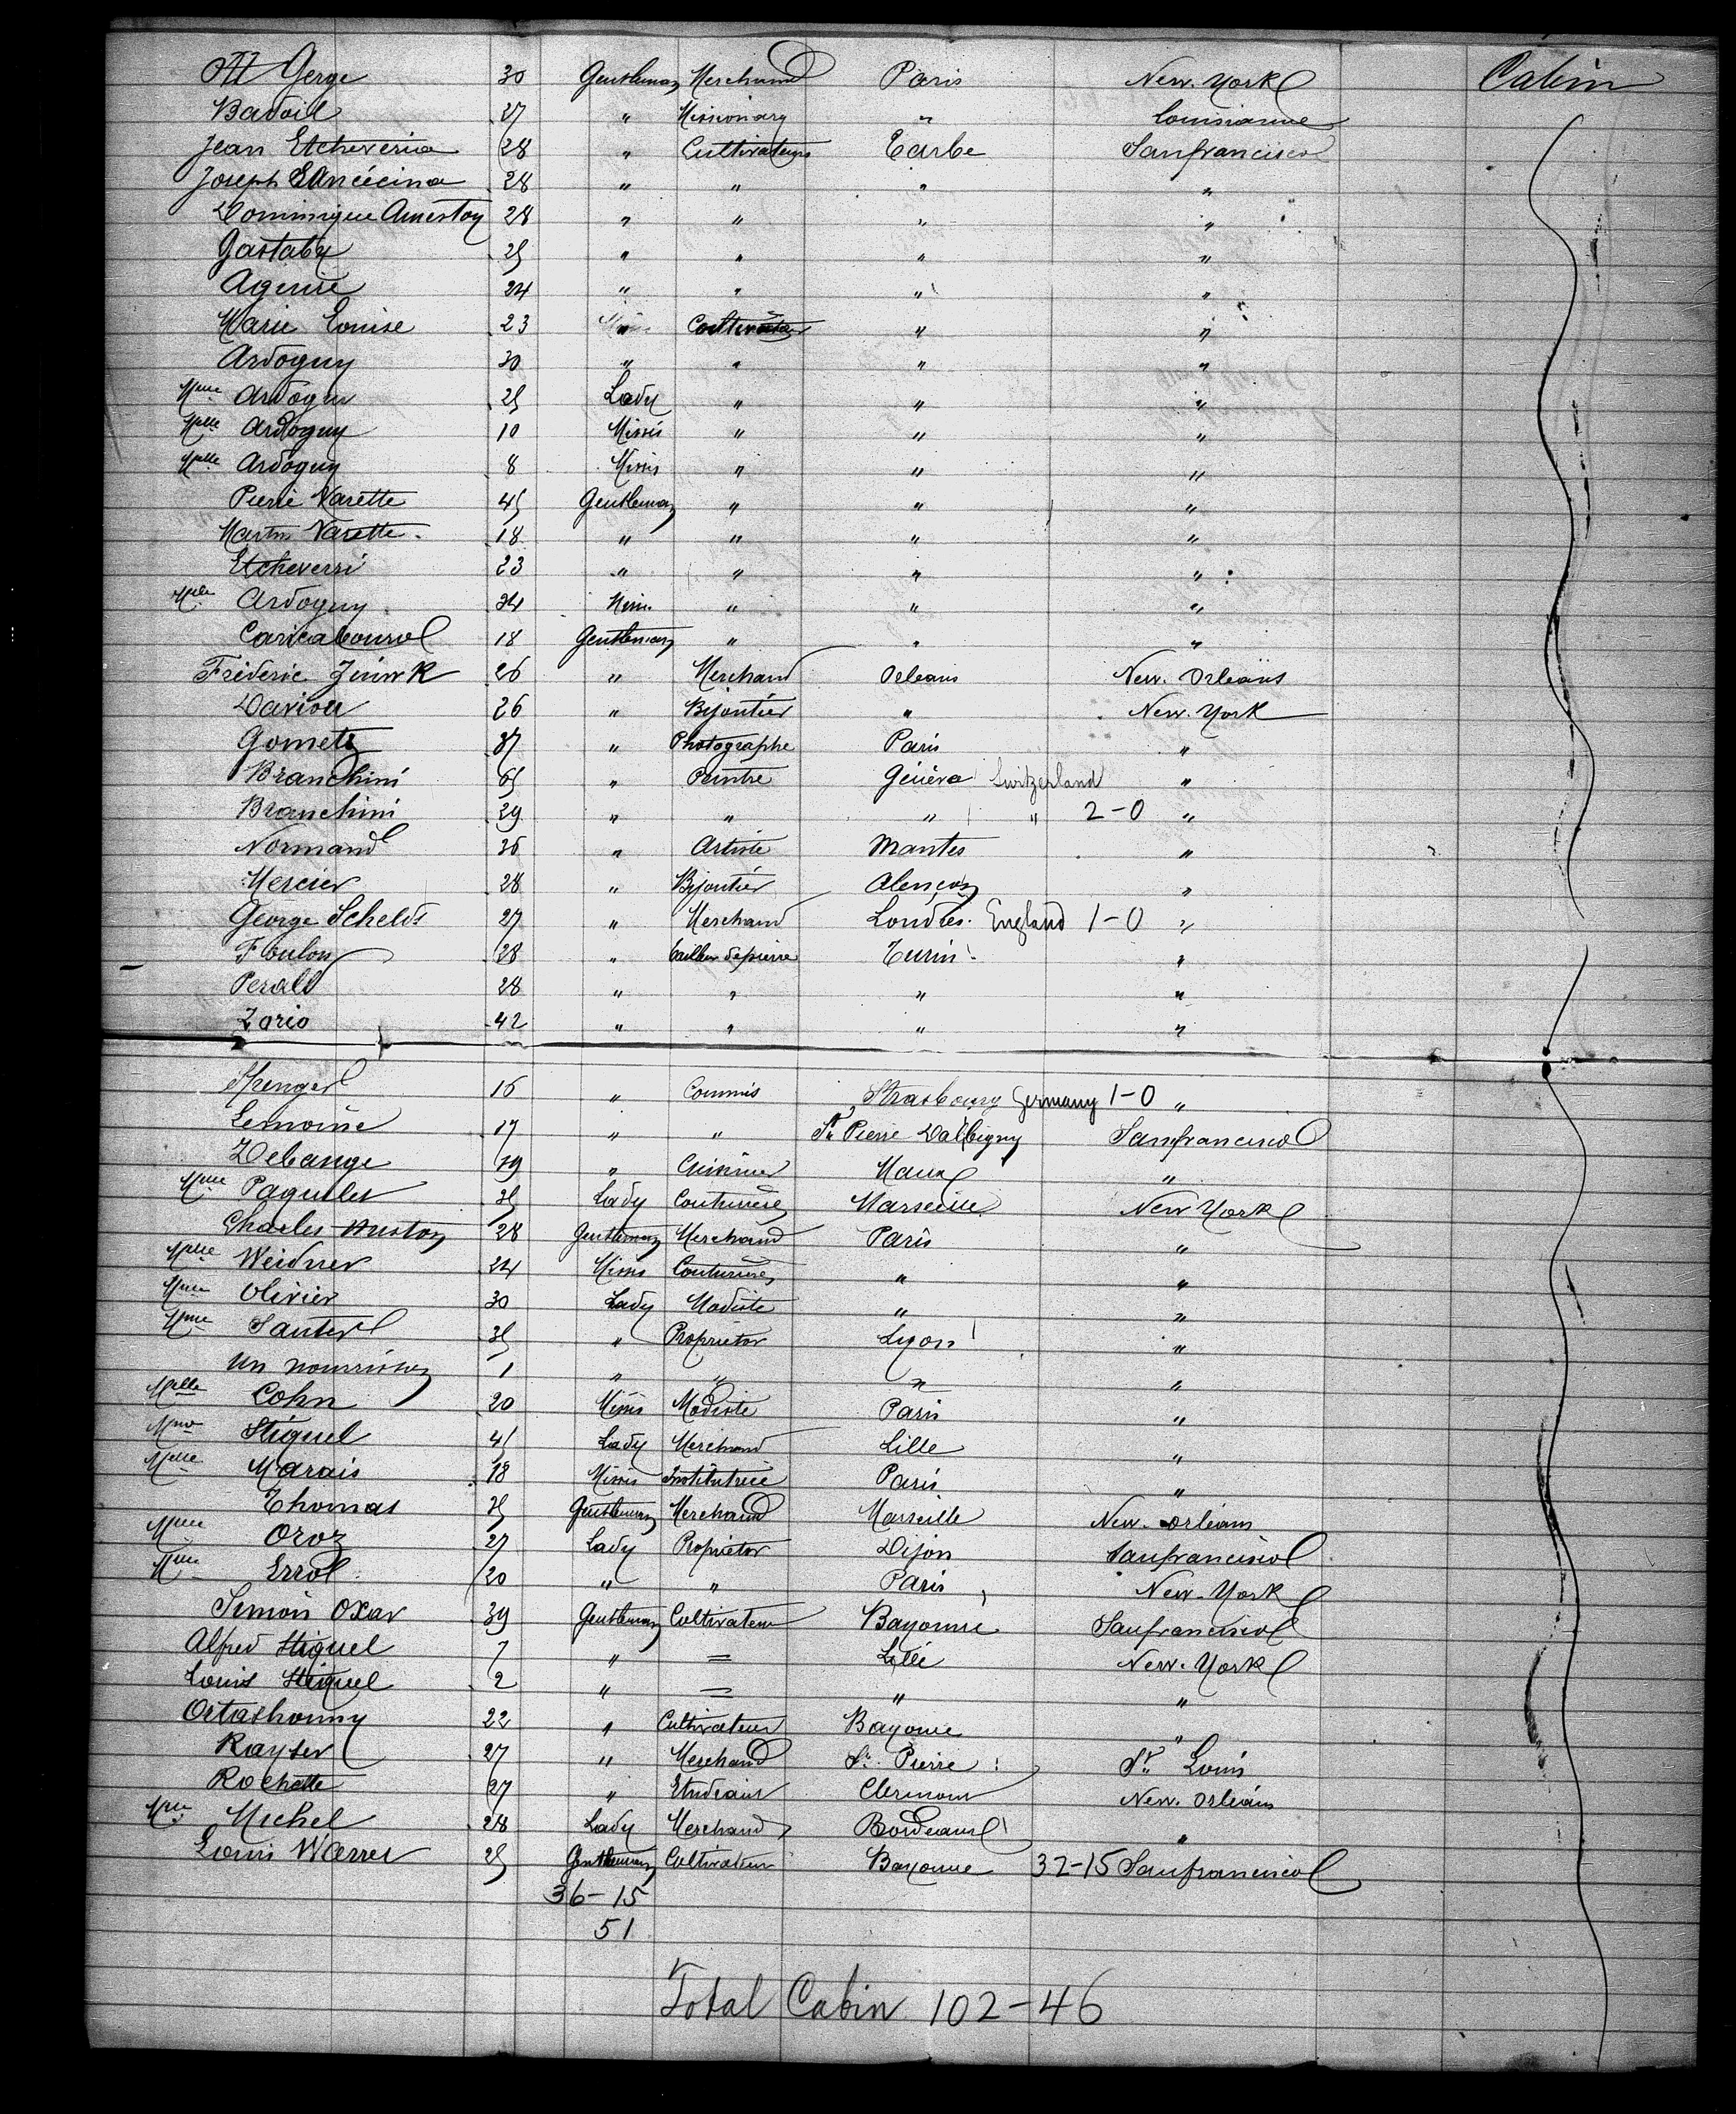 Ott Gerge 30 Gentleman Merchand Paris New-York Cabin
Badoil 27 " Missionary " Louisianne
Jean Etcheveria 28 " Cultivateurs Tarbe Sanfrancisco
Joseph 28 " " " "
Dominique Amestoy 28 " " " "
Gastaby 25 " " " "
Aguirre 24 " " " "
Marie Louise 23 " Cultivateur " "
Ardoguy 30 " " " "
Mme Ardoguy 25 Lady " " "
Melle Ardoguy 10 Missis " " "
Melle Ardoguy 8 Missis " " "
Pierre Narette 45 Gentleman " " "
Martin Narette 18 " " " "
Etcheverri 23 " " " "
Melle Ardoguy 24 Miss " " "
18 Gentleman " " "
Frederic 26 " Merchand Orleans New-Orleans
Dariou 26 " Bijoutier " New-York
Gometz 37 " Photographe Paris "
Branchini 65 " Peintre Généva Switzerland "
Branchini 39 " " " " 2-0 "
Normand 36 " Artiste Mantes "
Mercier 28 " Bijoutier Alençon "
George Schelds 27 " Merchand Londres England 1-0 "
Foulon 28 " tailleur de pierre Turin "
Perald 28 " " " "
Zorio 42 " " " "
Spengel 16 " Commis Strasbourg Germany 1-0 "
Lemoine 17 " " St Pierre Dalbigny Sanfrancisco
Debange 39 " Cuisinier "
Mme Paquelet 35 Lady Couturière Marseille New York
Charles Muston 28 Gentleman Merchand Paris "
Melle Weidner 24 Missis Couturière " "
Mme Olivier 30 Lady Modiste " "
Mme Sauterel 35 " Proprietor Lyon "
Un nourrisson 1 " " " "
Melle Cohn 20 Missis Modiste Paris "
Mme Stiquel 41 Lady Merchand Lille "
Melle Marais 18 Missis Institutrice Paris "
Thomas 35 Gentleman Merchand Marseille New-Orléans
Mme Oroz 27 Lady Proprietor Dijon Sanfrancisco
Mme Errol 20 " " Paris New-York
Simon Oxar 39 Gentleman Cultivateur Bayonne Sanfrancisco
Alfred Stiquel 7 " = Lille New-York
Louis Stiquel 2 " = " "
22 " Cultivateur Bayonne "
Kayser 27 " Merchand St Pierre St Louis
Rochette 27 " Etudiant Clermont New-Orléans
Mme Michel 28 Lady Merchand Bordeaux "
Louis 25 Gentleman Cultivateur Bayonne 32-15 Sanfrancisco
36-15
51
Total Cabin 102-46